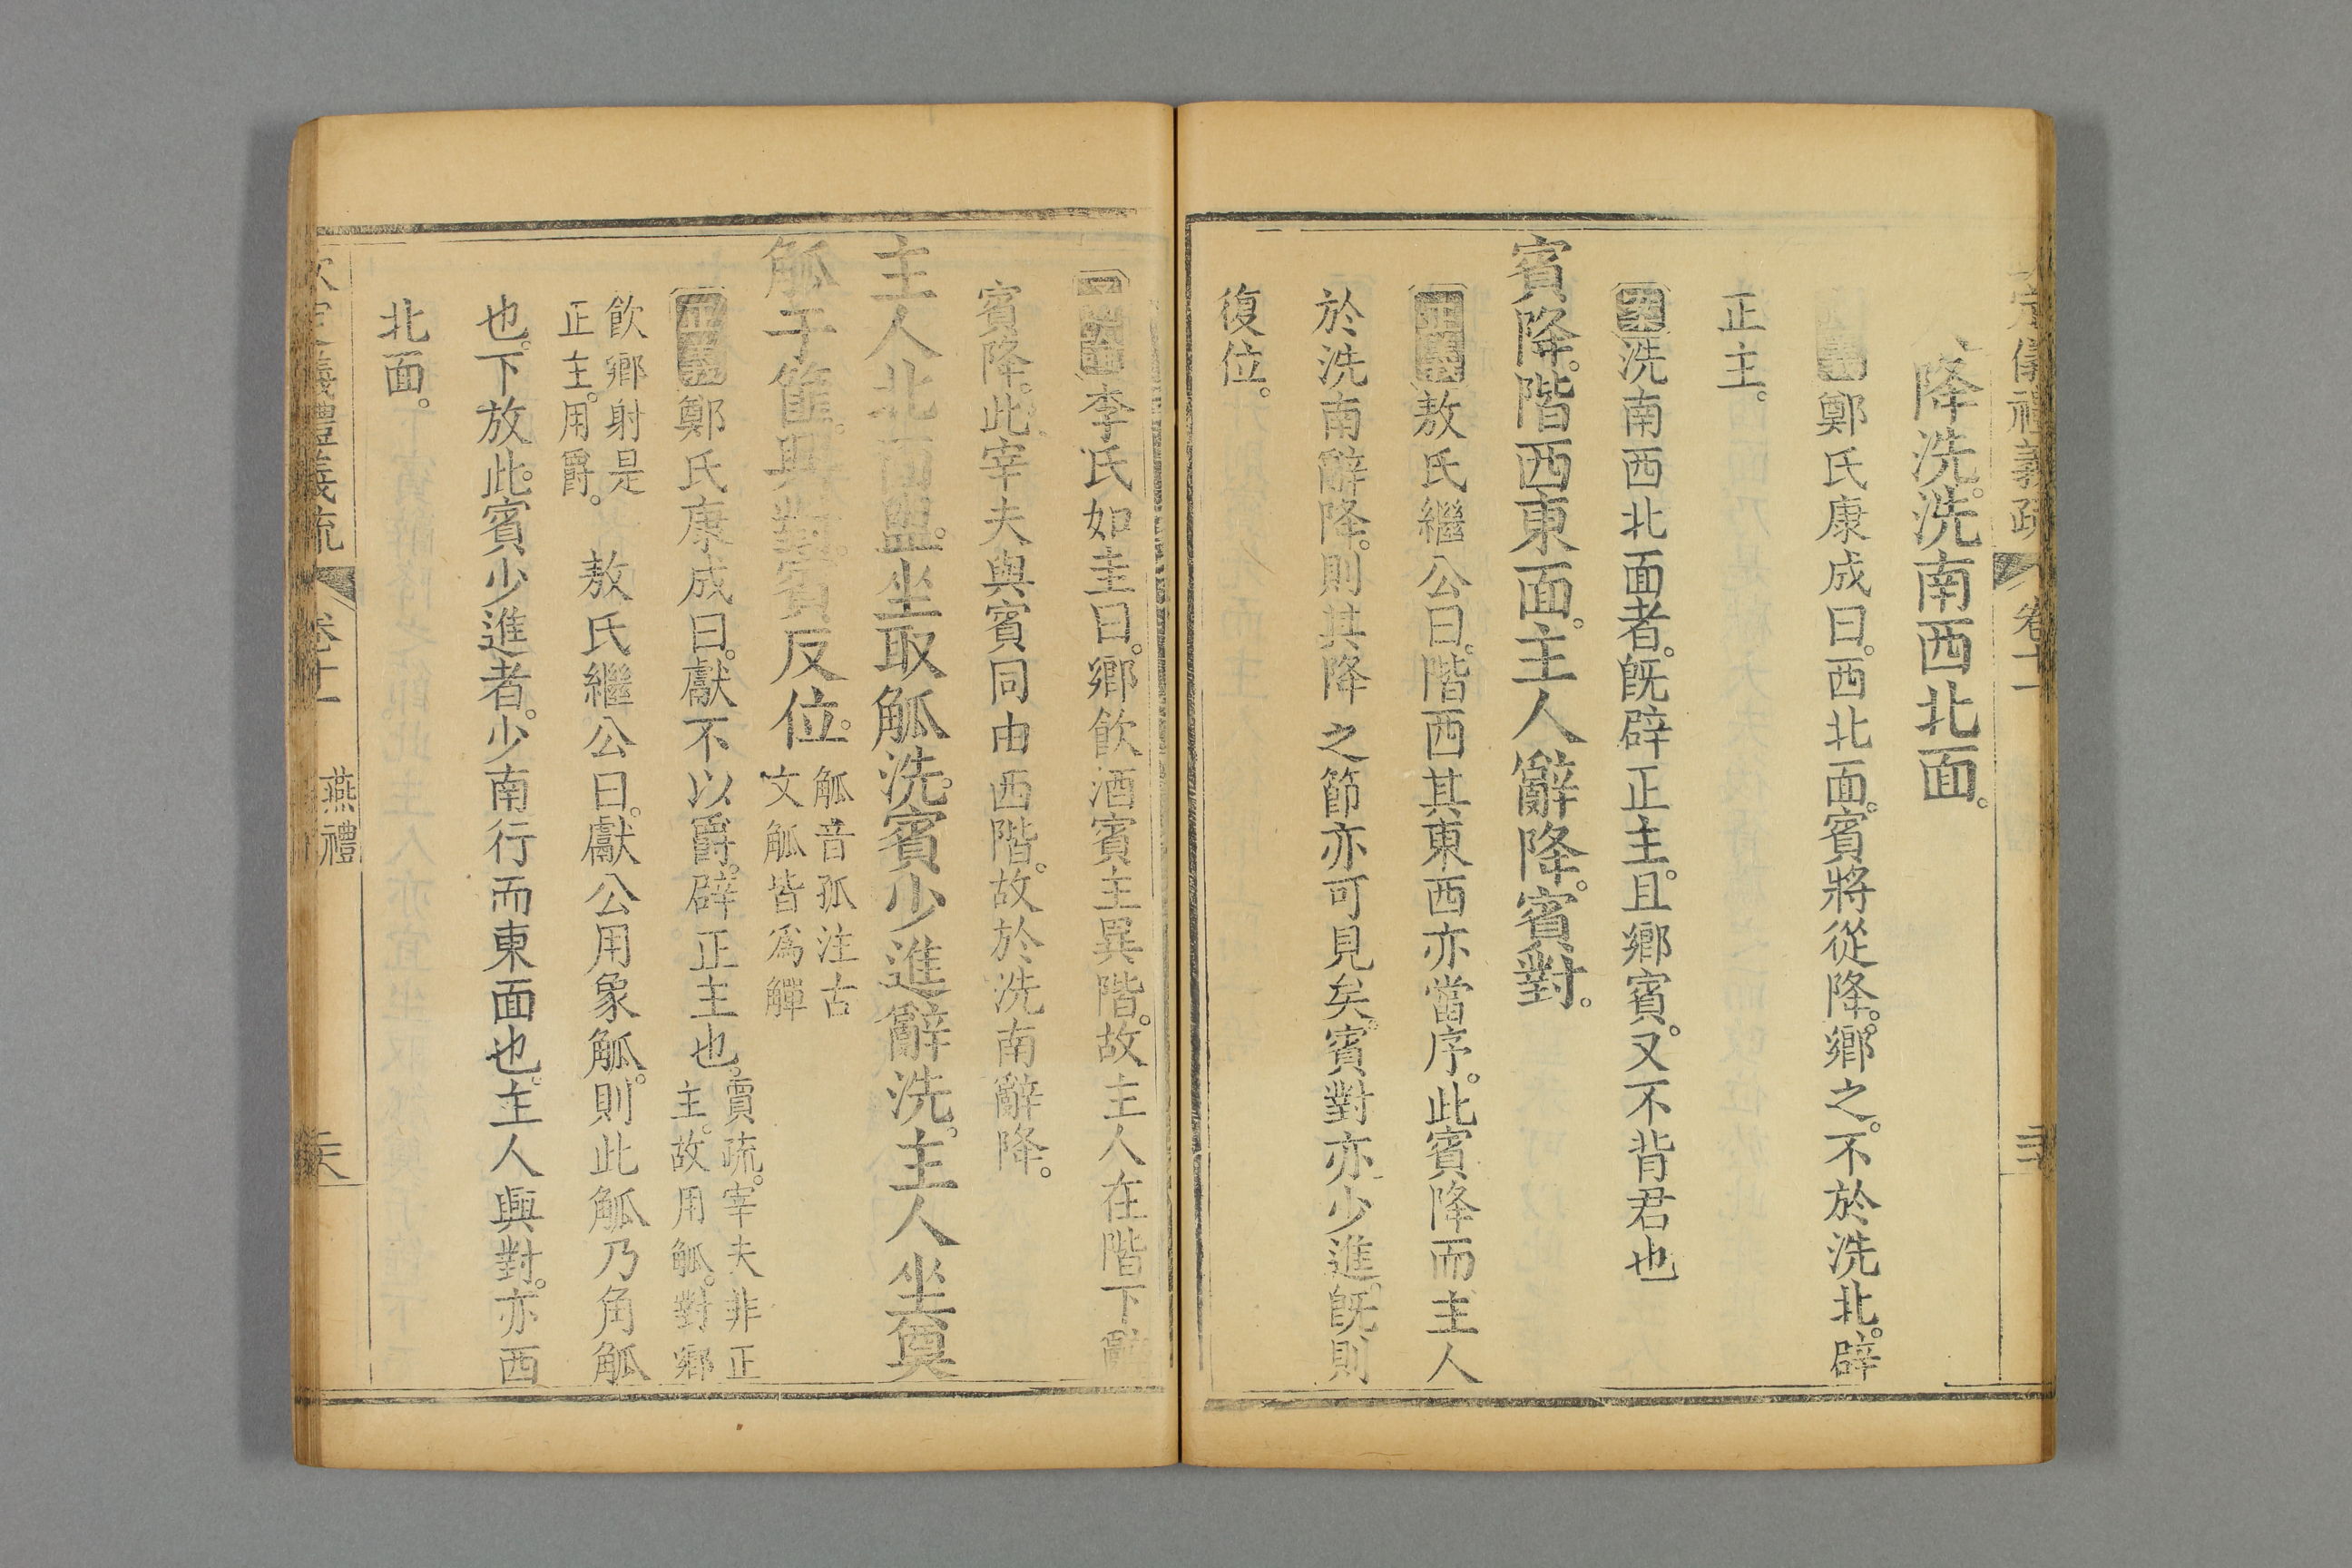 定儀禮義疏 卷十一
降洗。洗南西北面。
鄭氏康成曰。西北面。賓將從降。鄉之。不於洗北。辟
正主。
案洗南西北面者。旣辟正主。且鄉賓。又不背君也
賓降。階西東面。主人辭降。賓對。
正義敖氏繼公曰。階西其東西亦當序。此賓降而主人
於洗南辭降。則其降之節亦可見矣。賓對亦少進。旣則
復位。
李氏如圭曰。鄉飲酒賓主異階。故主人在階下辭
賓降。此宰夫與賓同由西階。故於洗南辭降。
主人北面盥。坐取觚洗。賓少進辭洗。主人坐奠
觚于篚。興對。賓反位。觚音孤注古
文觚皆爲觶
正義鄭氏康成曰。獻不以爵。辟正主也。賈疏。宰夫非正
主。故用觚。對鄉
飲鄉射是
正主。用爵。 敖氏繼公曰。獻公用象觚。則此觚乃角觚
也。下放此。賓少進者。少南行而東面也。主人與對。亦西
北面。
欽定儀禮義疏 卷十一 燕禮